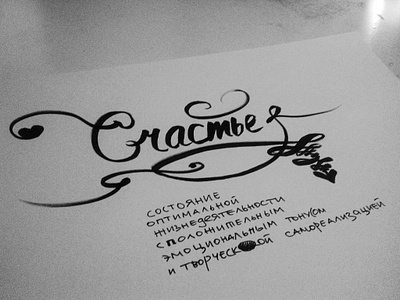 Счастье
состояние
оптимальной
жизнедеятельности
с положительным
эмоциональным тонусом
и творческой самореализацией